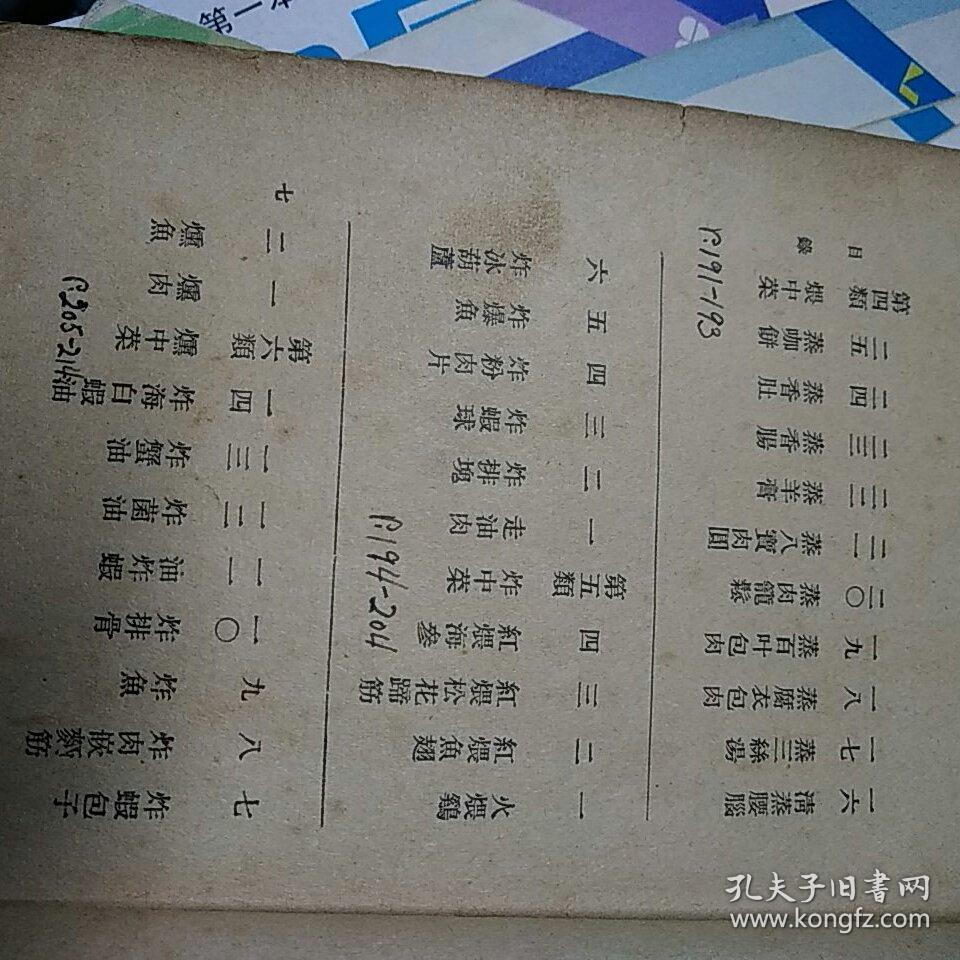 第一本
目錄
一六 清蒸腰腦
一七 蒸三絲湯
一八 蒸腐衣包肉
一九 蒸百叶包肉
二〇 蒸肉籠鬆
二一 蒸八寶肉圓
二二 蒸羊膏
二三 蒸香腸
二四 蒸香肚
二五 蒸咖餅
第四類 煨中菜
P.191-193
一 火煨鷄
二 紅煨魚翅
三 紅煨松花蹄筋
四 紅煨海參
第五類 炸中菜
P.194-204
一 走油肉
二 炸排塊
三 炸蝦球
四 炸粉肉片
五 炸爆魚
六 炸冰葫蘆
七 炸蝦包子
八 炸肉嵌麪筋
九 炸魚
一〇 炸排骨
一一 油炸蝦
一二 炸菌油
一三 炸蟹油
一四 炸海白蝦油
第六類 燻中菜
P.205-214
一 燻肉
二 燻魚
七
孔夫子旧書网
www.kongfz.com